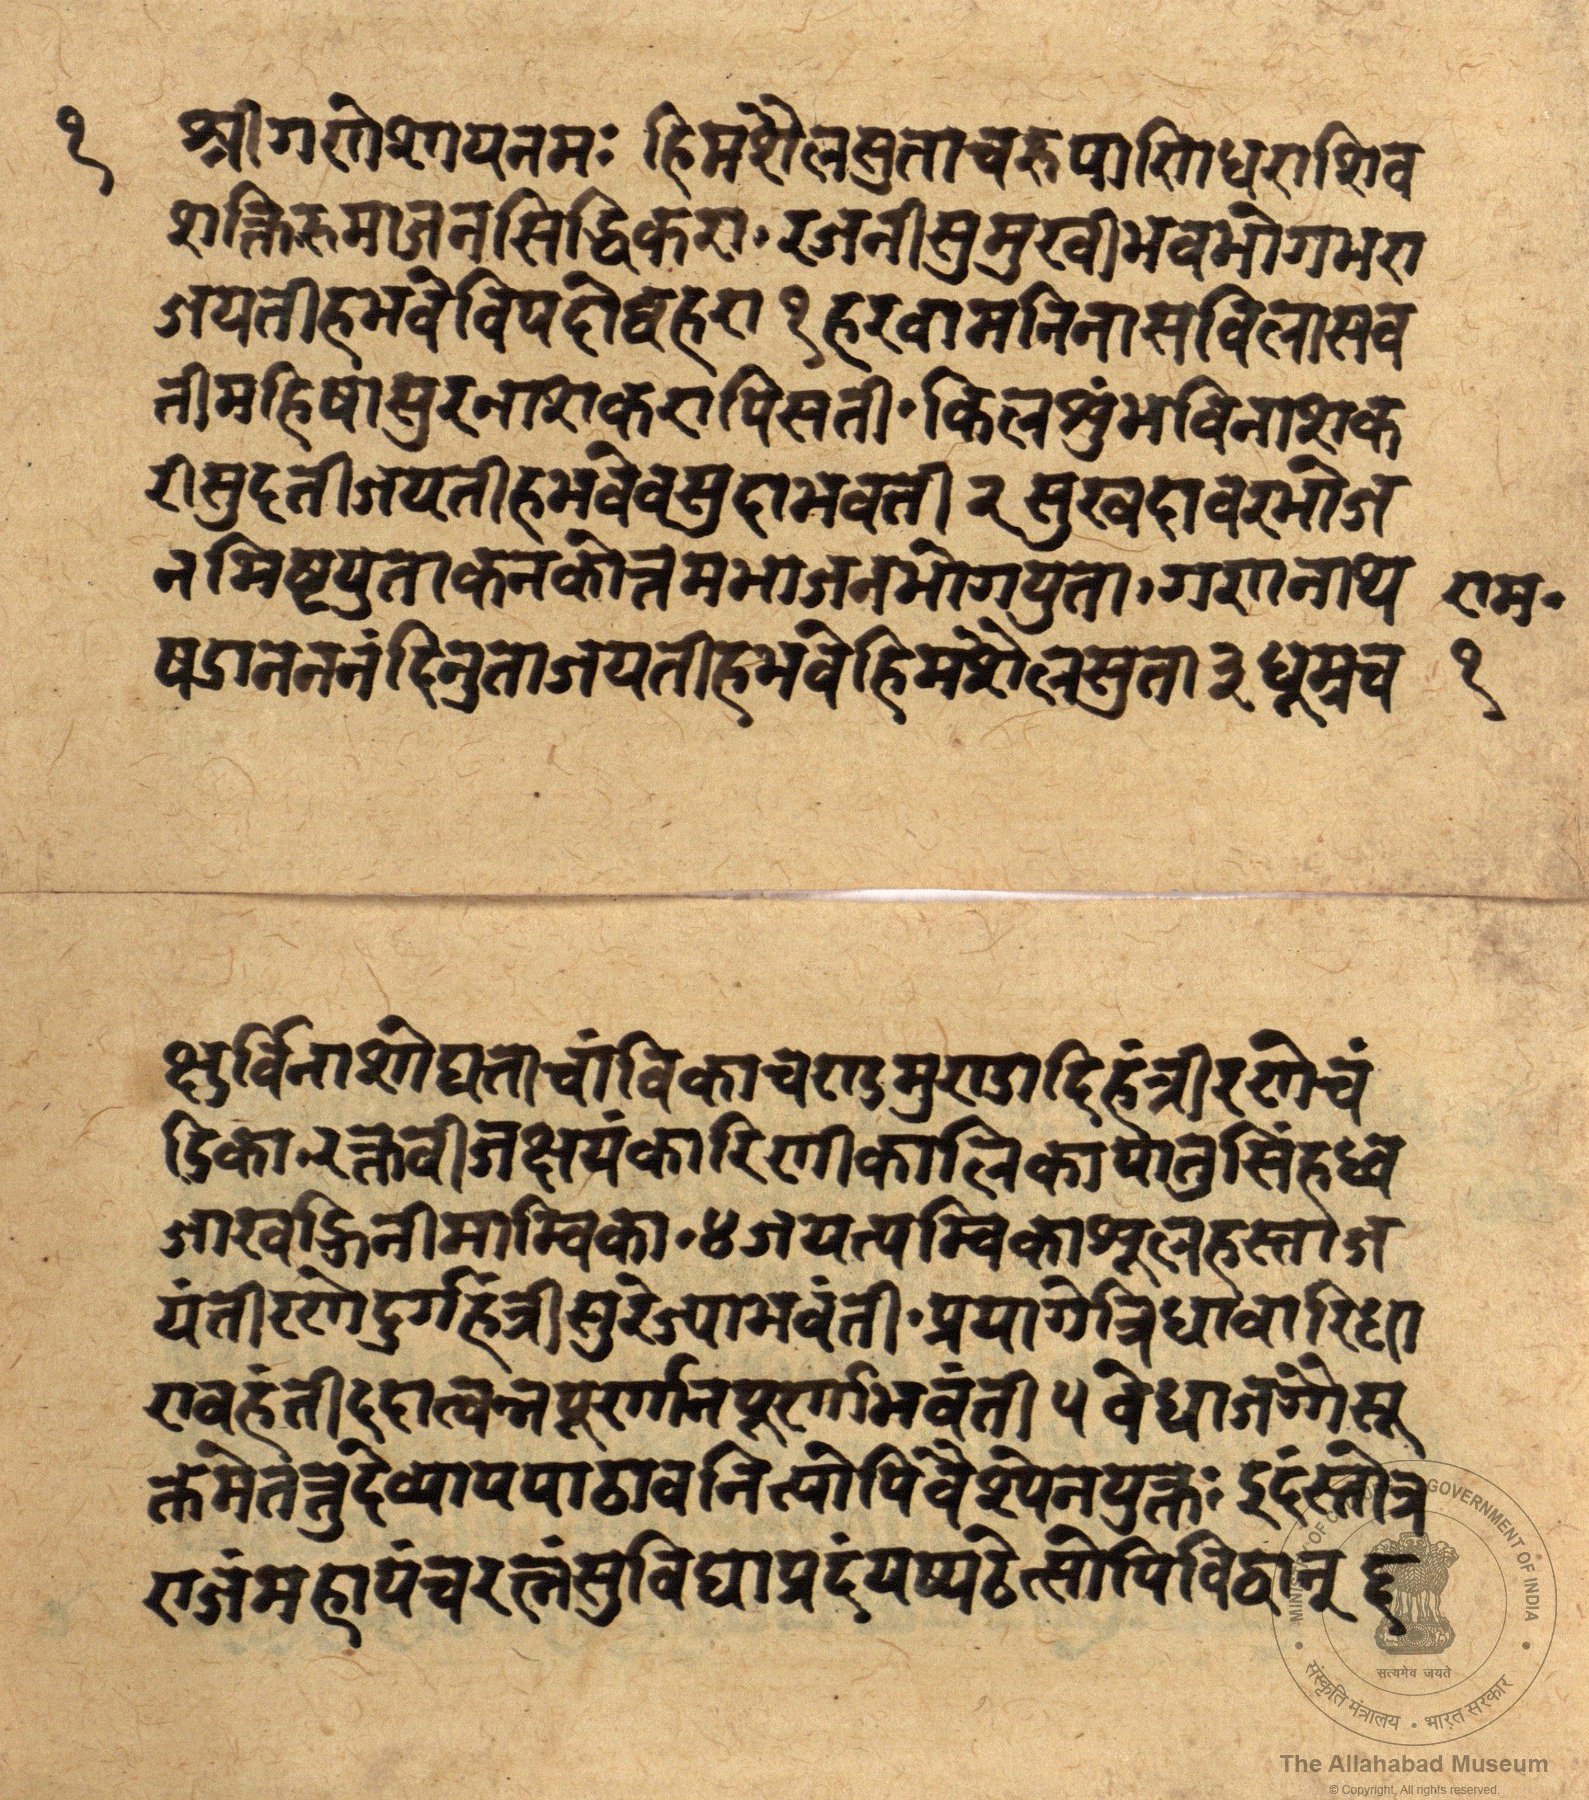 १ श्रीगणेशायनमः हिमशैलसुताचरुपाणिधराशिव
शक्तिरुमाजनसिद्धिकरा॰रजनीसुमुखीभवभोगभरा
जयतीहभवेविपदोघहरा १ हरवामनिनासविलासव
तीमहिषासुरनाशकरापिसती॰किलशुंभविनाशक
रीसुदतीजयतीहभवेवसुदाभवती २ सुखदावरभोज
नमिष्टयुताकनकोत्तमभाजनभोगयुता॰गणनाथ राम॰
षडानननंदिनुताजयतीहभवेहिमशैलसुता ३ धूम्रच १
क्षुर्विनाशोद्यताचांविकाचण्डमुण्डादिहंत्रीरणेचं
डिका॰रक्तवीजक्षयंकारिणीकालिकापातुसिंहध्व
जाखड्गिनीमाम्विका॰४जयत्यम्विकाशूलहस्ताज
यंतीरणेदुर्गहंत्रीसुरेज्याभवंती॰प्रयागेत्रिधावारिधा
रावहंतीददात्वन्नपूर्णान्नपूर्णाभवंती ५ वेधाजगौसू
क्तमेतत्तुदेव्यापपाठावनित्योपिवैश्येनयुक्तः इदंस्तोत्र
राजंमहापंचरत्नंसुविद्याप्रदंयष्पठेत्सोपिविद्वान् ६
MINISTRY OF CULTURE GOVERNMENT OF INDIA
सत्यमेव जयते
संस्कृति मंत्रालय • भारत सरकार
The Allahabad Museum
© Copyright, All rights reserved.